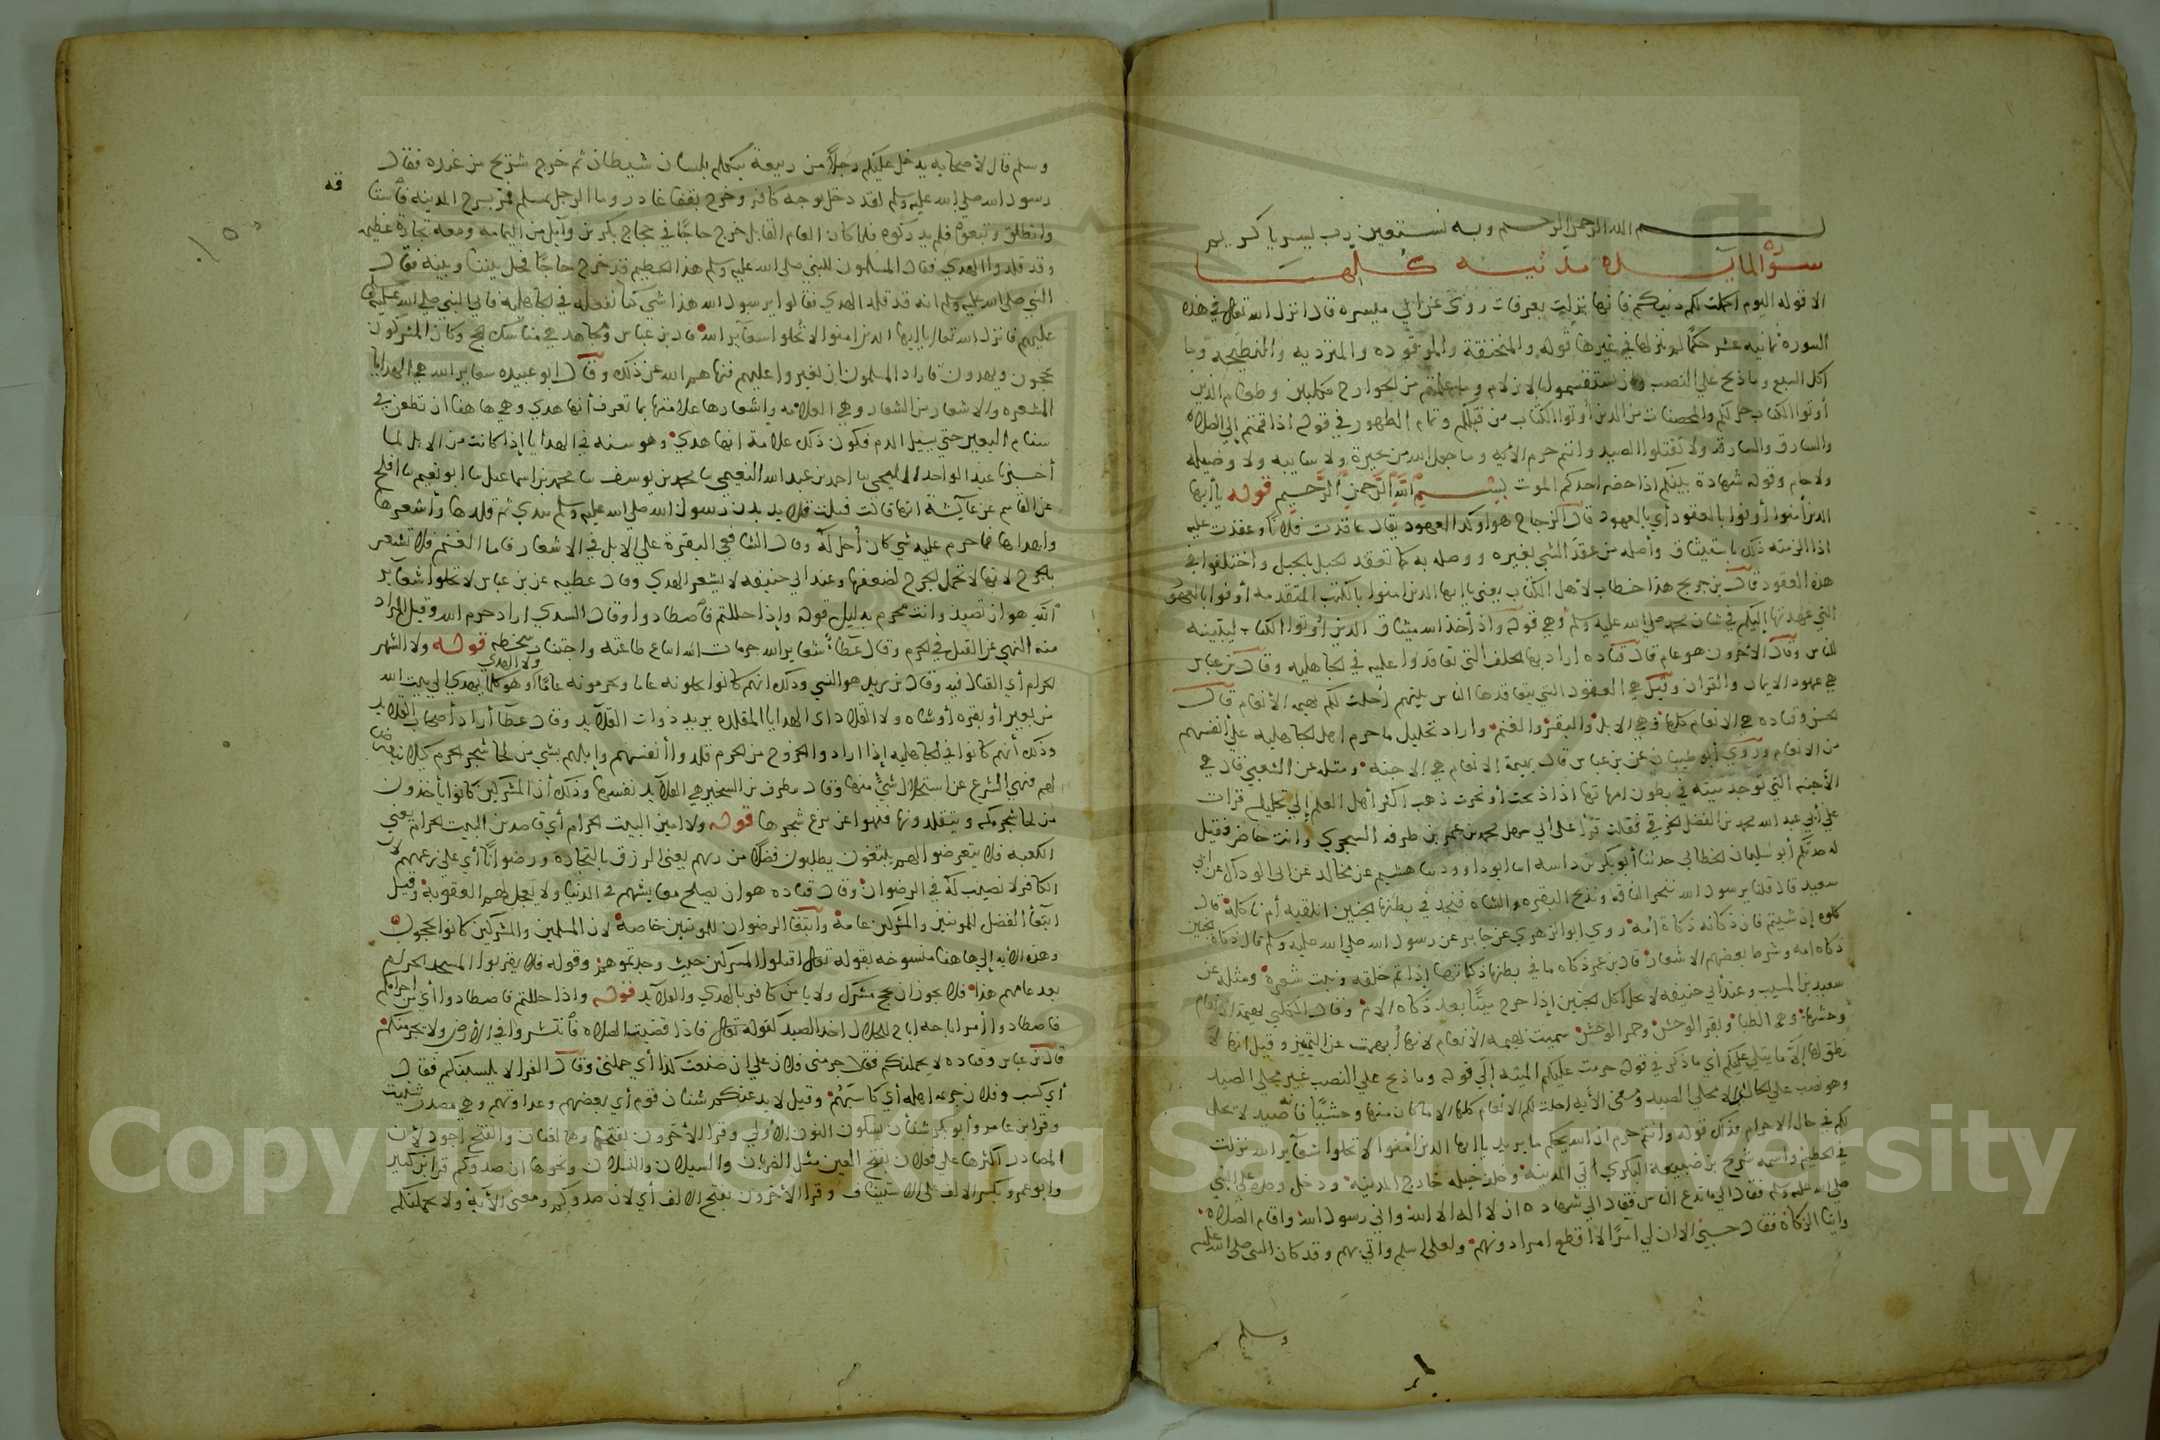 بسم الله الرحمن الرحيم وبه نستعين رب يسر يا كريم
سورة المايدة مدنية كلها
الا قوله اليوم اكملت لكم دينكم فانها نزلت بعرفات روى عن ابي ميسره قال انزل الله تعالى في هذه
السورة ثمانيه عشر حكمًا لم ينزلها في غيرها قوله والمنخنقة والموقوده والمتردية والنطيحة وما
اكل السبع وما ذبح على النصب وان تستقسموا بالازلام وما علمتم من الجوارح مكلبين وطعام الذين
أوتوا الكتاب حل لكم والمحصنات من الذين أوتوا الكتاب من قبلكم وتمام الطهور في قوله اذا قمتم إلى الصلاة
والسارق والسارقة ولا تقتلوا الصيد وانتم حرم الأيه وما جعل الله من بحيرة ولا سايبه ولا وصيله
ولا حام وقوله شهادة بينكم اذا حضر احدكم الموت بِسْمِ اللَّهِ الرَّحمنِ الرَّحِيم قوله يأايها
الذين أمنوا أوفوا بالعقود أي بالعهود قال الزجاج هو اوكد العهود يقال عاقدت فلانًا وعقدت عليه
اذا الزمته ذلك باستيثاق وأصله من عقد الشي بغيره ووصله به كما تعقد الحبل بالحبل واختلفوا في
هذه العقود قال بن جريج هذا خطاب لأهل الكتاب يعني ياايها الذين امنوا بالكتب المتقدمه أوفوا بالعهود
التي عهدتها إليكم في شان محمد صلى الله عليه وسلم وهي قوله وإذ أخذ الله ميثاق الذين أوتوا الكتاب ليبيننه
للناس وقال الأخرون هو عام قال قتاده اراد بها الحلف التي تعاقدوا عليه في الجاهليه وقال بن عباس
هي عهود الايمان والقران وقيل هي العقود التي يتعاقدها الناس بينهم أحلت لكم بهيمه الأنعام قال
الحسن وقتاده هي الانعام كلها وهي الابل والبقر والغنم واراد تحليل ما حرم اهل الجاهليه على أنفسهم
من الانعام وروي أبو ظبيان عن بن عباس قال بهيمة الانعام هي الاجنه ومثله عن الشعبي قال هي
الأجنه التي توجد ميته في بطون امهاتها اذا ذبحت أو نحرت ذهب اكثر أهل العلم إلى تحليله قرات
على أبي عبد الله محمد بن الفضل الخرقي فقلت قرأ على أبي سهل محمد بن عمر بن طرفه السجزي وانت حاضر فقيل
له حدثكم أبو سليمان الخطابي حدثنا أبو بكر بن داسه انا ابو داوود ثنا هشيم عن مجالد عن ابي الوداك عن ابي
سعيد قال قلنا يرسول الله ننحر الناقه ونذبح البقره والشاه فنجد في بطنها الجنين انلقيه أم ناكله قال
كلوه إن شيتم فان ذكاته ذكاة أمه روي ابو الزهري عن جابر عن رسول الله صلى الله عليه وسلم قال ذكاة الجنين
ذكاه امه وشرط بعضهم الاشعار قال بن عمر ذكاه ما في بطنها ذكاتها إذا تم خلقه ونبت شعره ومثله عن
سعيد بن المسيب وعند أبي حنيفه لا يحل اكل الجنين إذا خرج ميتًا بعد ذكاه الام وقال الكلبي بهيمة الانعام
وحشها وهي الظبا وبقر الوحش وحمر الوحش سميت بهيمه الأنعام لانها أبهمت عن التمييز وقيل انها لا
نطق لها إلا ما يتلى عليكم أي ما ذكر في قوله حرمت عليكم الميته إلى قوله وما ذبح على النصب غير محلي الصيد
وهو نصب على الحال اي لا محلي الصيد ومعنى الأيه احلت لكم الأنعام كلها الا ما كان منها وحشيًا فانه صيد لا يحل
لكم في حال الاحرام فذلك قوله وانتم حرم ان الله يحكم ما يريد ياايها الذين امنوا لا تحلوا شعآير الله نزلت
في الحطيم واسمه شريح بن ضبيعه البكري أتي المدينه وخلف خيله خارج المدينة ودخل وحده على النبي
صلى الله عليه وسلم فقال الى ما تدع الناس فقال الى شهاده ان لا اله الا الله واني رسول الله واقام الصلاه
وايتا الزكاة فقال حسن الا ان لي أمرًا لا اقطع امرا دونهم ولعلي اسلم واتي بهم وقد كان النبي صلى الله عليه
وسلم
وسلم قال لأصحابه يدخل عليكم رجلًا من ربيعة يتكلم بلسان شيطان ثم خرج شريح من عنده فقال
رسول الله صلى الله عليه وسلم لقد دخل بوجه كافر وخرج بقفا غادر وما الرجل بمسلم فمر بسرح المدينه فاستا
قه
وانطلق وتبعوه فلم يدركوه فلما كان العام القابل خرج حاجًا في حجاج بكر بن وآيل من اليمامه ومعه تجارة عظيمه
وقد قلدوا الهدي فقال المسلمون للنبي صلى الله عليه وسلم هذا الحطيم قد خرج حاجًا فخل بيننا وبينه فقال
النبي صلى الله عليه وسلم انه قد قلد الهدي فقالوا يرسول الله هذا شي كنا نفعله في الجاهليه فابى النبي صلى الله عليه
عليهم فانزل الله تعالى ياايها الذين امنوا لا تحلوا شعآير الله قال بن عباس ومجاهد هي مناسك الحج وكان المشركون
يحجون ويهدون فاراد المسلمون ان يغيروا عليهم فنهاهم الله عن ذلك وقال ابو عبيده شعاير الله هي الهدايا
المشعره والاشعار من الشعار وهي العلامه واشعارها علامتها بما تعرف أنها هدي وهي هاهنا ان تطعن في
سنام البعير حتى يسيل الدم فيكون ذلك علامة انها هدي وهو سنه في الهدايا إذا كانت من الابل لما
أخبرنا عبد الواحد المليحي نا احمد بن عبد الله النعيمي نا محمد بن يوسف نا محمد بن إسماعيل نا ابو نعيم نا افلح
عن القاسم عن عآيشة انها قالت فتلت قلايد بدن رسول الله صلى الله عليه وسلم بيدي ثم قلدها وأشعرها
واهداها فما حرم عليه شي كان أحل له وقال الشافعي البقرة على الابل في الاشعار فاما الغنم فلا تشعر
بالجرح لانها لا تحمل الجرح لضعفها وعند ابي حنيفه لا يشعر الهدي وقال عطيه عن بن عباس لا تحلوا شعآير
الله هو ان تصيد وانت محرم بدليل قوله وإذا حللتم فاصطادوا وقال السدي اراد حرم الله وقيل المراد
منه النهي عن القتل في الحرم وقال عطآ شعاير الله حرمات الله اتباع طاعته واجتناب سخطه قوله ولا الشهر
ولا الهدي
الحرام أي القتال فيه وقال بن زيد هو النسي وذلك انهم كانوا يحلونه عاما ويحرمونه عامًا وهو كلما يهدي إلى بيت الله
من بعير أو بقره أو شاه ولا القلايد اي الهدايا المقلده يريد ذوات القلآيد وقال عطآ أراد أصحاب القلايد
وذلك أنهم كانوا في الجاهليه إذا ارادوا الخروج من الحرم قلدوا أنفسهم وإبلهم بشي من لحا شجر الحرم كيلا يتعرض
لهم فنهي الشرع عن استحلال شيٍ منها وقال مطرف بن الشخير هي القلآيد نفسها وذلك أن المشركين كانوا يأخذون
من لحا شجر مكه ويتقلدونها فنهوا عن نزع شجرها قوله ولا امين البيت الحرام أي قاصدين البيت الحرام يعني
الكعبه فلا يتعرضوا لهم يبتغون يطلبون فضلًا من ربهم يعني الرزق بالتجاره ورضوانًا أي على زعمهم لان
الكافر لا نصيب له في الرضوان وقال قتاده هو ان يصلح معايشهم في الدنيا ولا يعجل لهم العقوبة وقيل
ابتغآ الفضل للمومنين والمشركين عامة وابتغا الرضوان للمومنين خاصة لان المسلمين والمشركين كانوا يحجون
وهذه الأيه إلى هاهنا منسوخه بقوله تعالى اقتلوا المشركين حيث وجدتموهم وقوله فلا يقربوا المسجد الحرام
بعد عامهم هذا فلا يجوز ان يحج مشرك ولا يامن كافر بالهدي والقلآيد قوله واذا حللتم فاصطادوا أي من احرامكم
فاصطادوا أمر اباحه اباح للحلال اخذ الصيد كقوله تعالى فاذا قضيت الصلاه فانتشروا في الأرض ولا يجرمنكم
قال بن عباس وقتاده لا يحملنكم فقال جرمني فلان على ان صنعت كذا أي حملني وقال الفرا لا يكسبنكم فقال
أي كسب وفلان جريمة اهله أي كاسبهم وقيل لا يدعنكم شنان قوم أي بغضهم وعداوتهم وهي مصدر شنيت
وقرا بن عامر وأبو بكر شنآن بسكون النون الأولي وقرا الأخرون بفتحها وهما لغتان والفتح اجود لأن
المصادر اكثرها على فعلان بفتح العين مثل الضربان والسيلان والنسلان ونحوها ان صدوكم قرا بن كثير
وابو عمرو بكسر الالف على الاستيناف وقرا الأخرون بفتح الالف أي لان صدوكم ومعنى الأية ولا يحملنكم
Copyright © King Saud University